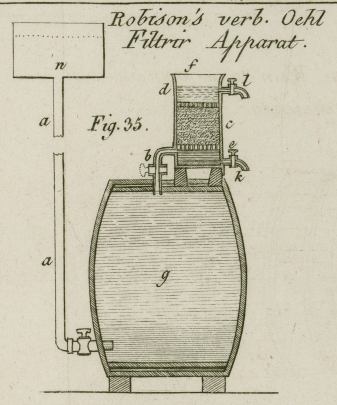 Robison's verb. Oehl
Filtrir Apparat.
n
f
l
d
a
Fig. 35.
c
e
b
k
a
g